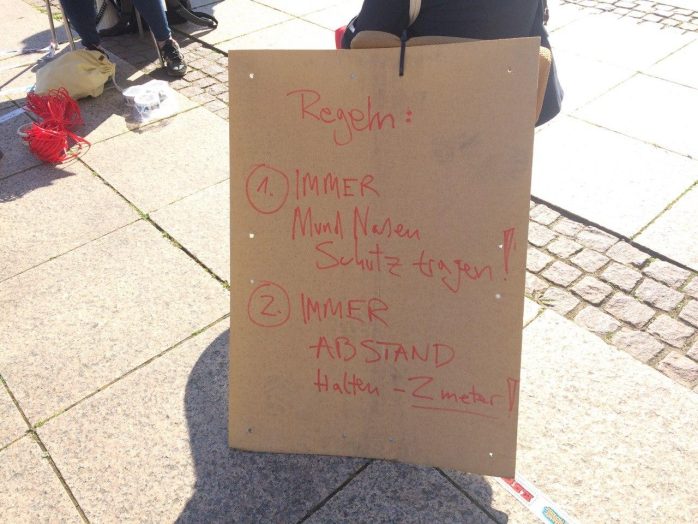 Regeln:
1. IMMER
Mund Nasen
Schutz tragen!
2. IMMER
ABSTAND
Halten - 2 meter!